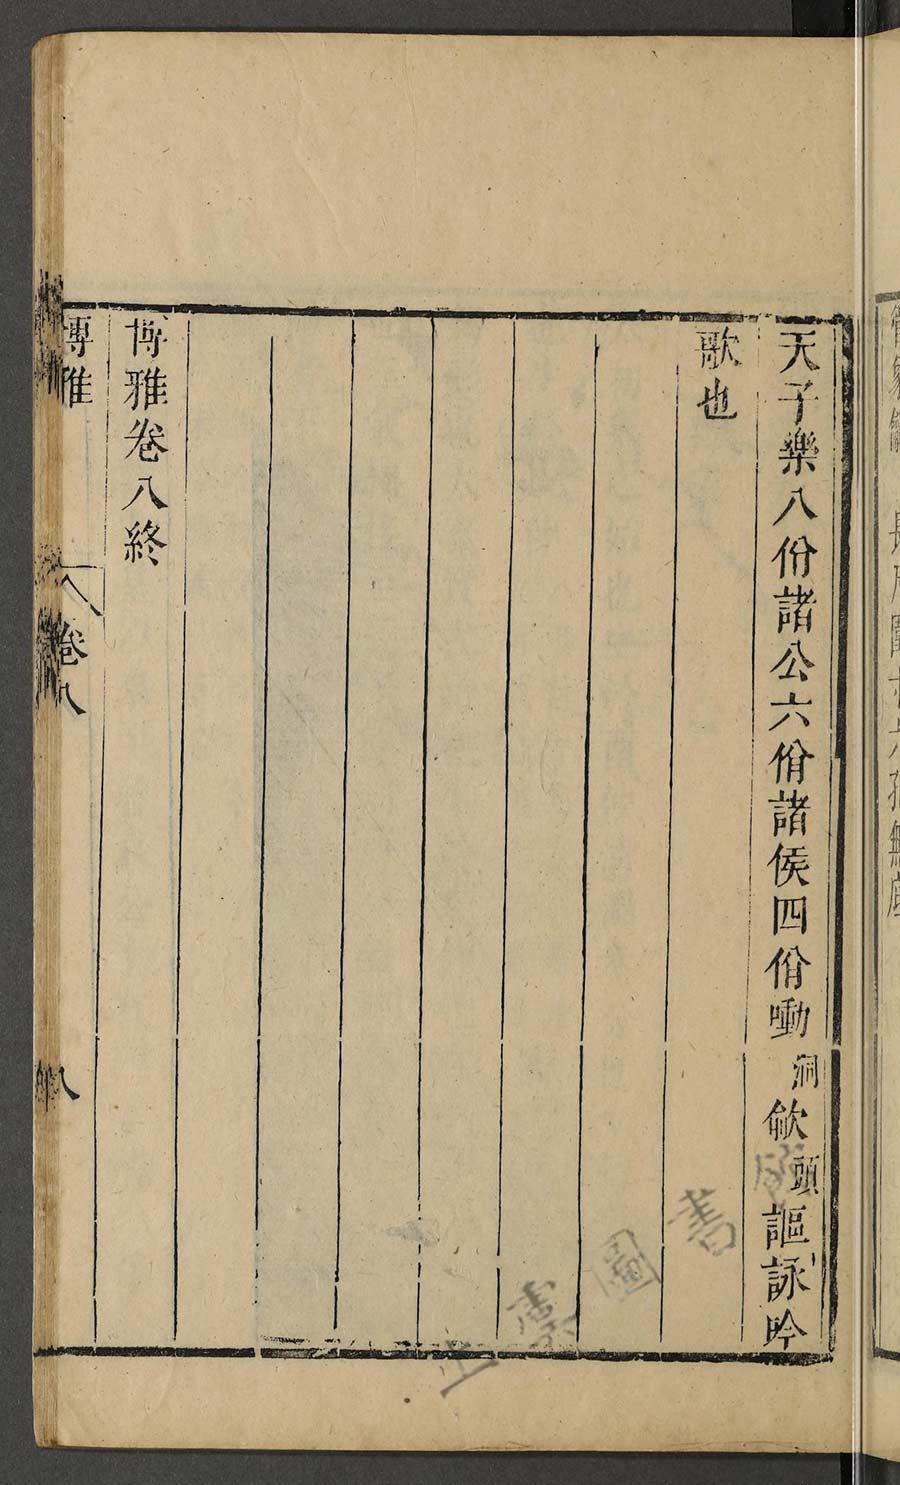 天子樂八佾諸公六佾諸侯四佾嘞洞歈頭謳詠吟
歌也
博雅卷八終
博雅 卷八 八
圖書